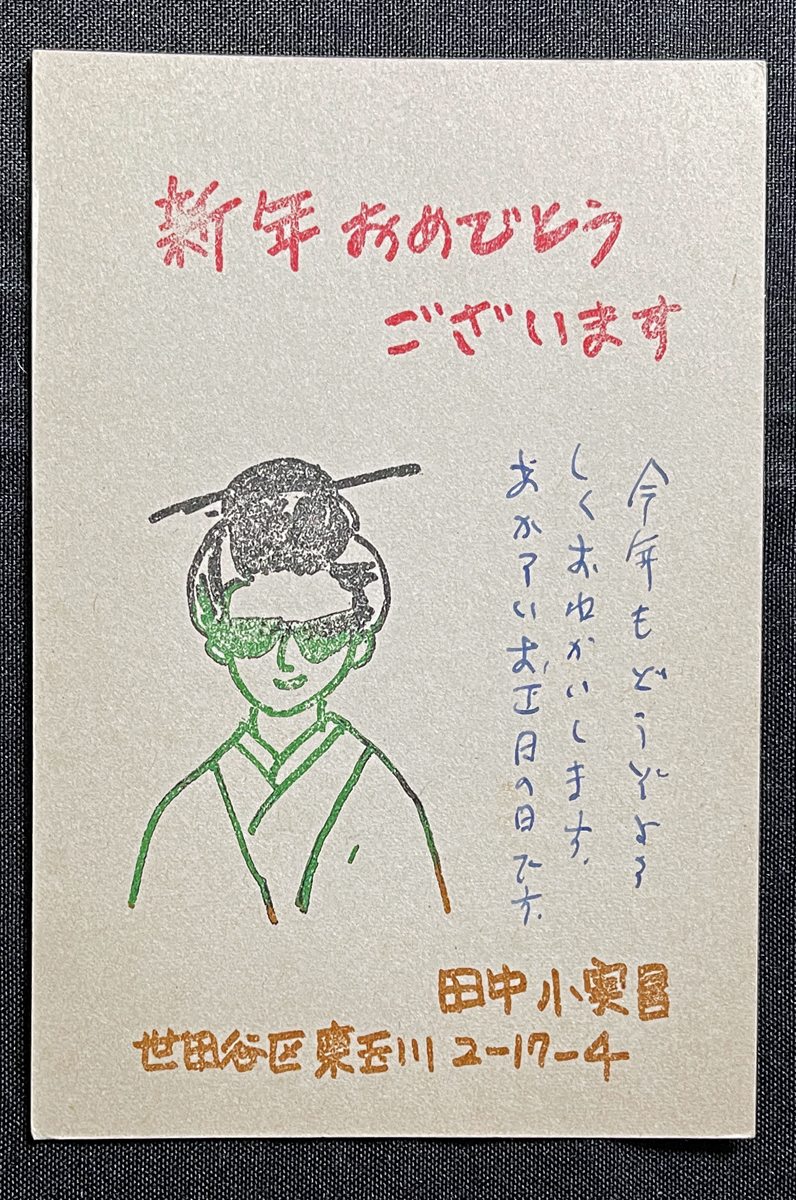 新年おめでとう
ございます
今年もどうぞよろ
しくおねがいします。
あかるいお正月の日です。
田中小実昌
世田谷区東玉川2-17-4